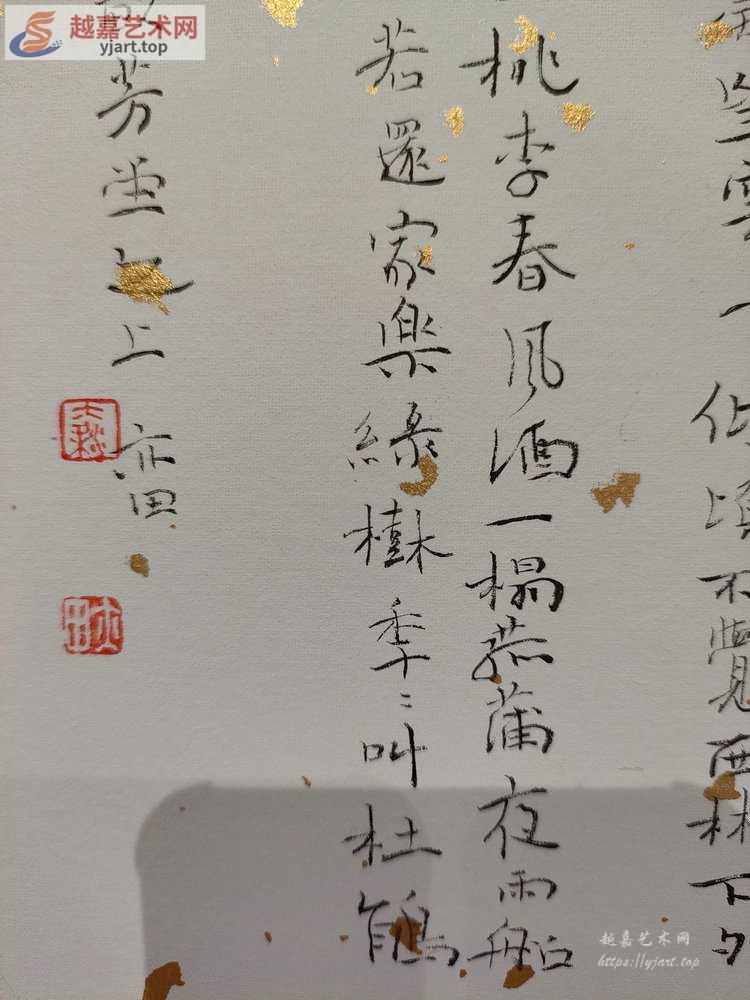 越嘉艺术网
yjart.top
雲一頃不覺西林下夕
桃李春風酒一榻菰蒲夜雨船
若還家樂綠樹秊〻叫杜鵑
芳堂之上 亦田
越嘉艺术网
https://yjart.top